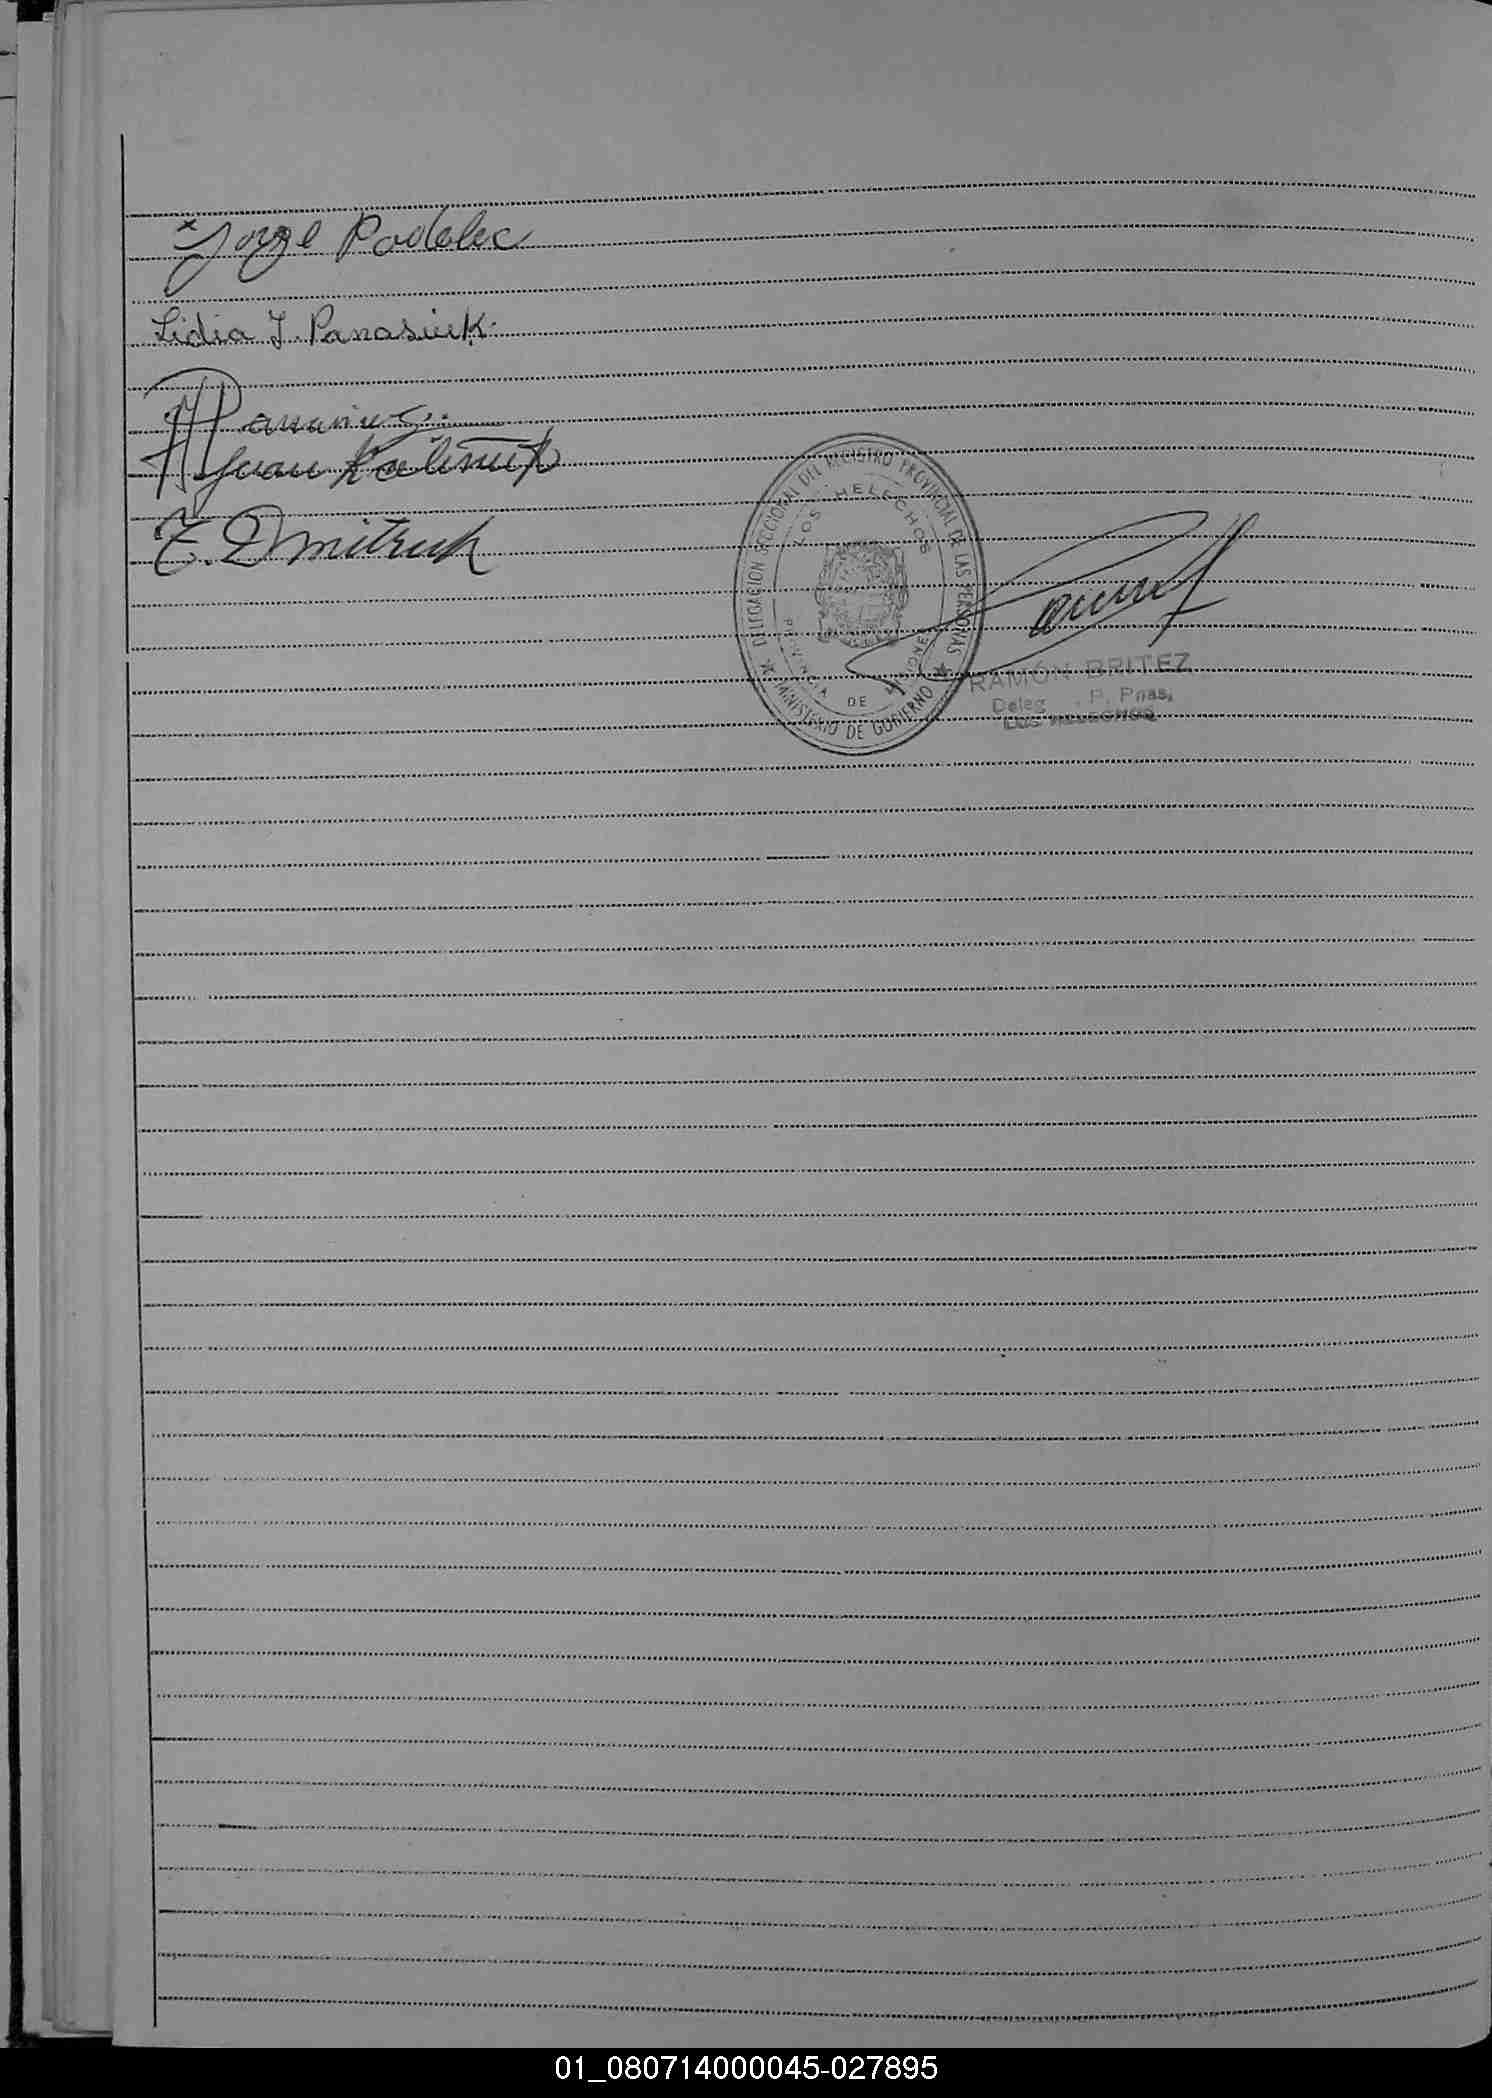 x Jorge Podolec
Lidia J. Panasiuk.
Juan Kalisiuk
E. Dmitruk
DELEGACION SECCIONAL DEL REGISTRO PROVINCIAL DE LAS PERSONAS
LOS HELECHOS
PROVINCIA DE MISIONES
MINISTERIO DE GOBIERNO
RAMÓN BRITEZ
Deleg P. Pnas.
LOS HELECHOS
01_080714000045-027895